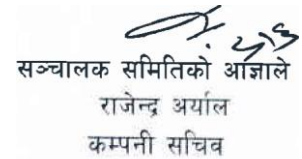 सञ्चालक समितिको आज्ञाले
राजेन्द्र अर्याल
कम्पनी सचिव